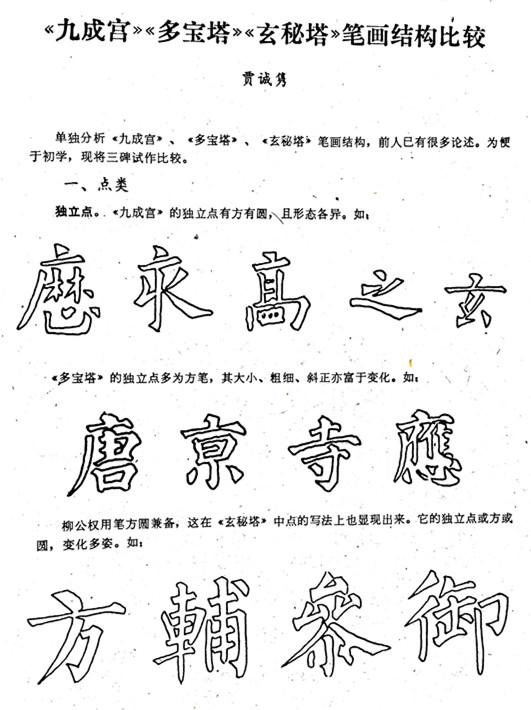 《九成宫》《多宝塔》《玄秘塔》笔画结构比较
贾诚隽
单独分析《九成宫》、《多宝塔》、《玄秘塔》笔画结构，前人已有很多论述。为便
于初学，现将三碑试作比较。
一、点类
独立点。《九成宫》的独立点有方有圆，且形态各异。如：
永 髙 之 玄
《多宝塔》的独立点多为方笔，其大小、粗细、斜正亦富于变化。如：
唐 亰 寺 應
柳公权用笔方圆兼备，这在《玄秘塔》中点的写法上也显现出来。它的独立点或方或
圆，变化多姿。如：
方 輔 參 御